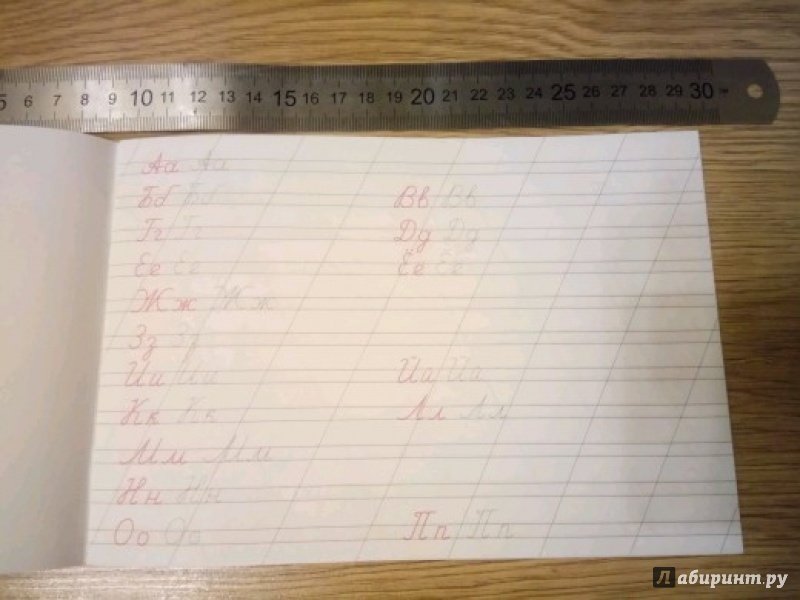 5 6 7 8 9 10 11 12 13 14 15 16 17 18 19 20 21 22 23 24 25 26 27 28 29 30
Аа Аа
Бб Бб Вв Вв
Гг Гг Дд Дд
Ее Ее Ёё Ёё
Жж Жж
Зз Зз
Ии Ии Йй Йй
Кк Кк Лл Лл
Мм Мм
Нн Нн
Оо Оо Пп Пп
Лабиринт.ру